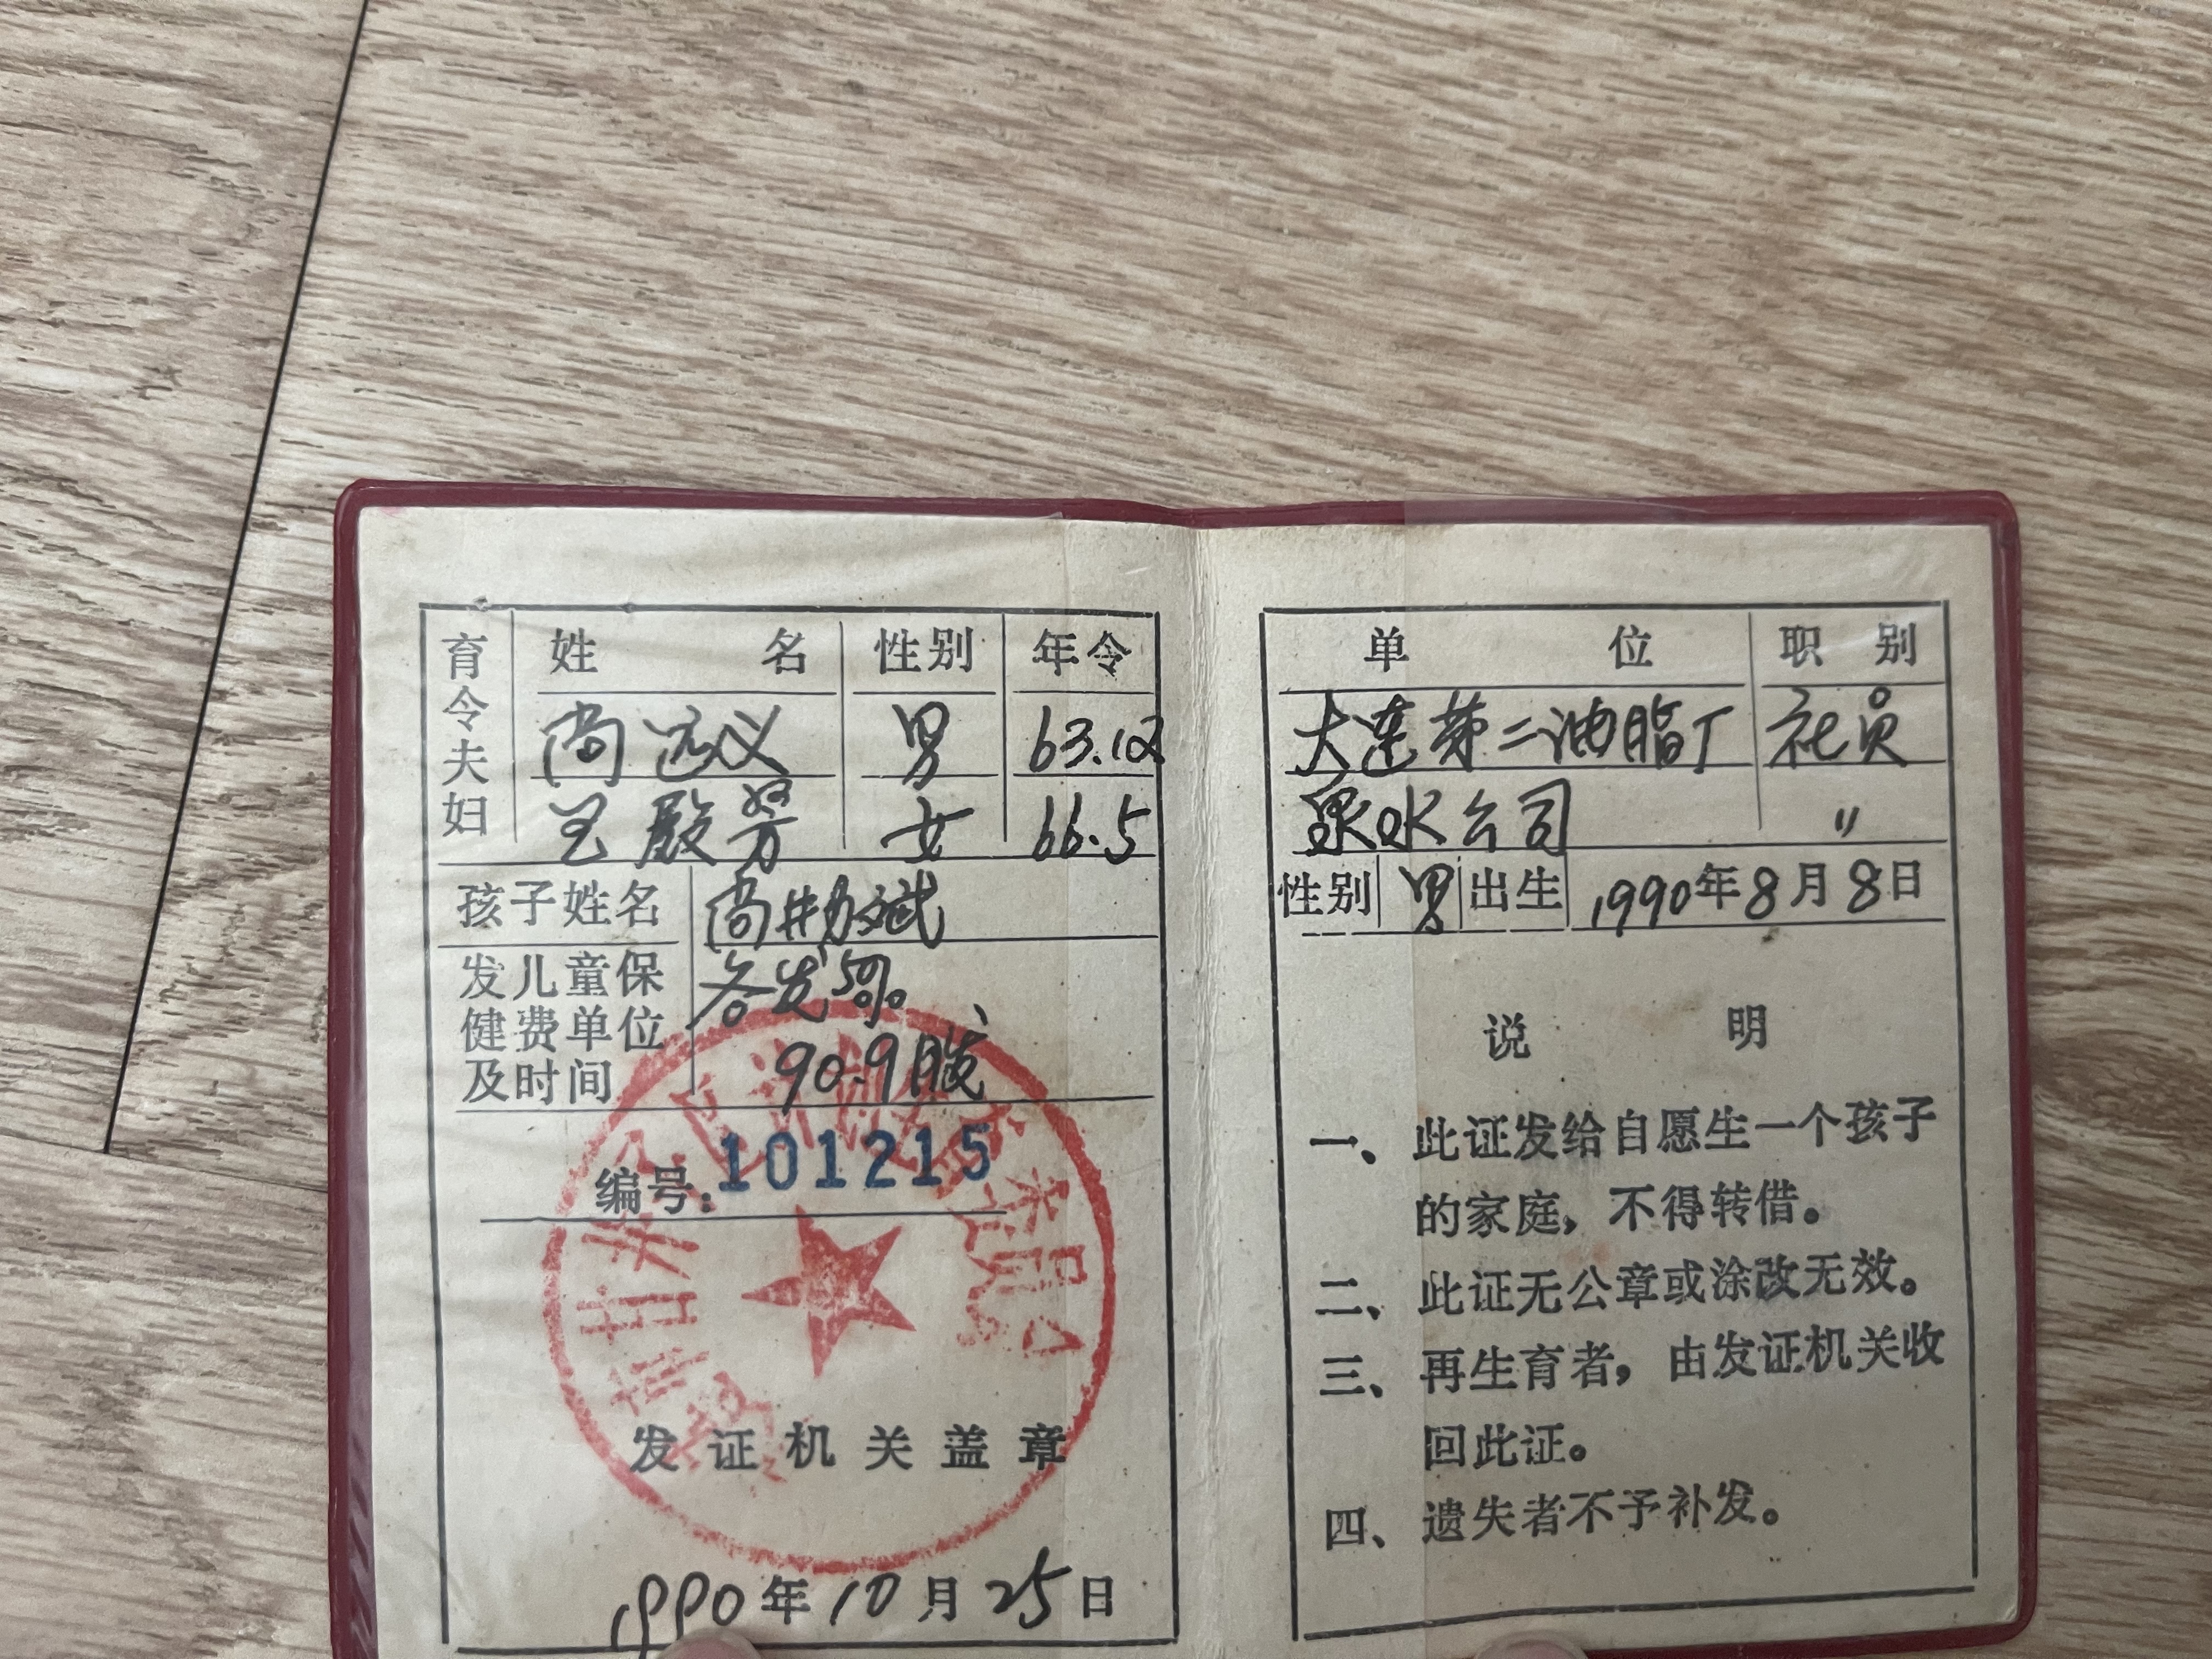 育令夫妇
姓名 性别 年令
尚远义 男 63.12
殿芳 女 66.5
孩子姓名 尚 斌
发儿童保健费单位及时间
各发50%。
90.9月发
编号：101215
发证机关盖章
1990年10月25日
单位 职别
大连第二油脂厂 社员
泉水公司 〃
性别 男 出生 1990年8月8日
说明
一、此证发给自愿生一个孩子
的家庭，不得转借。
二、此证无公章或涂改无效。
三、再生育者，由发证机关收
回此证。
四、遗失者不予补发。